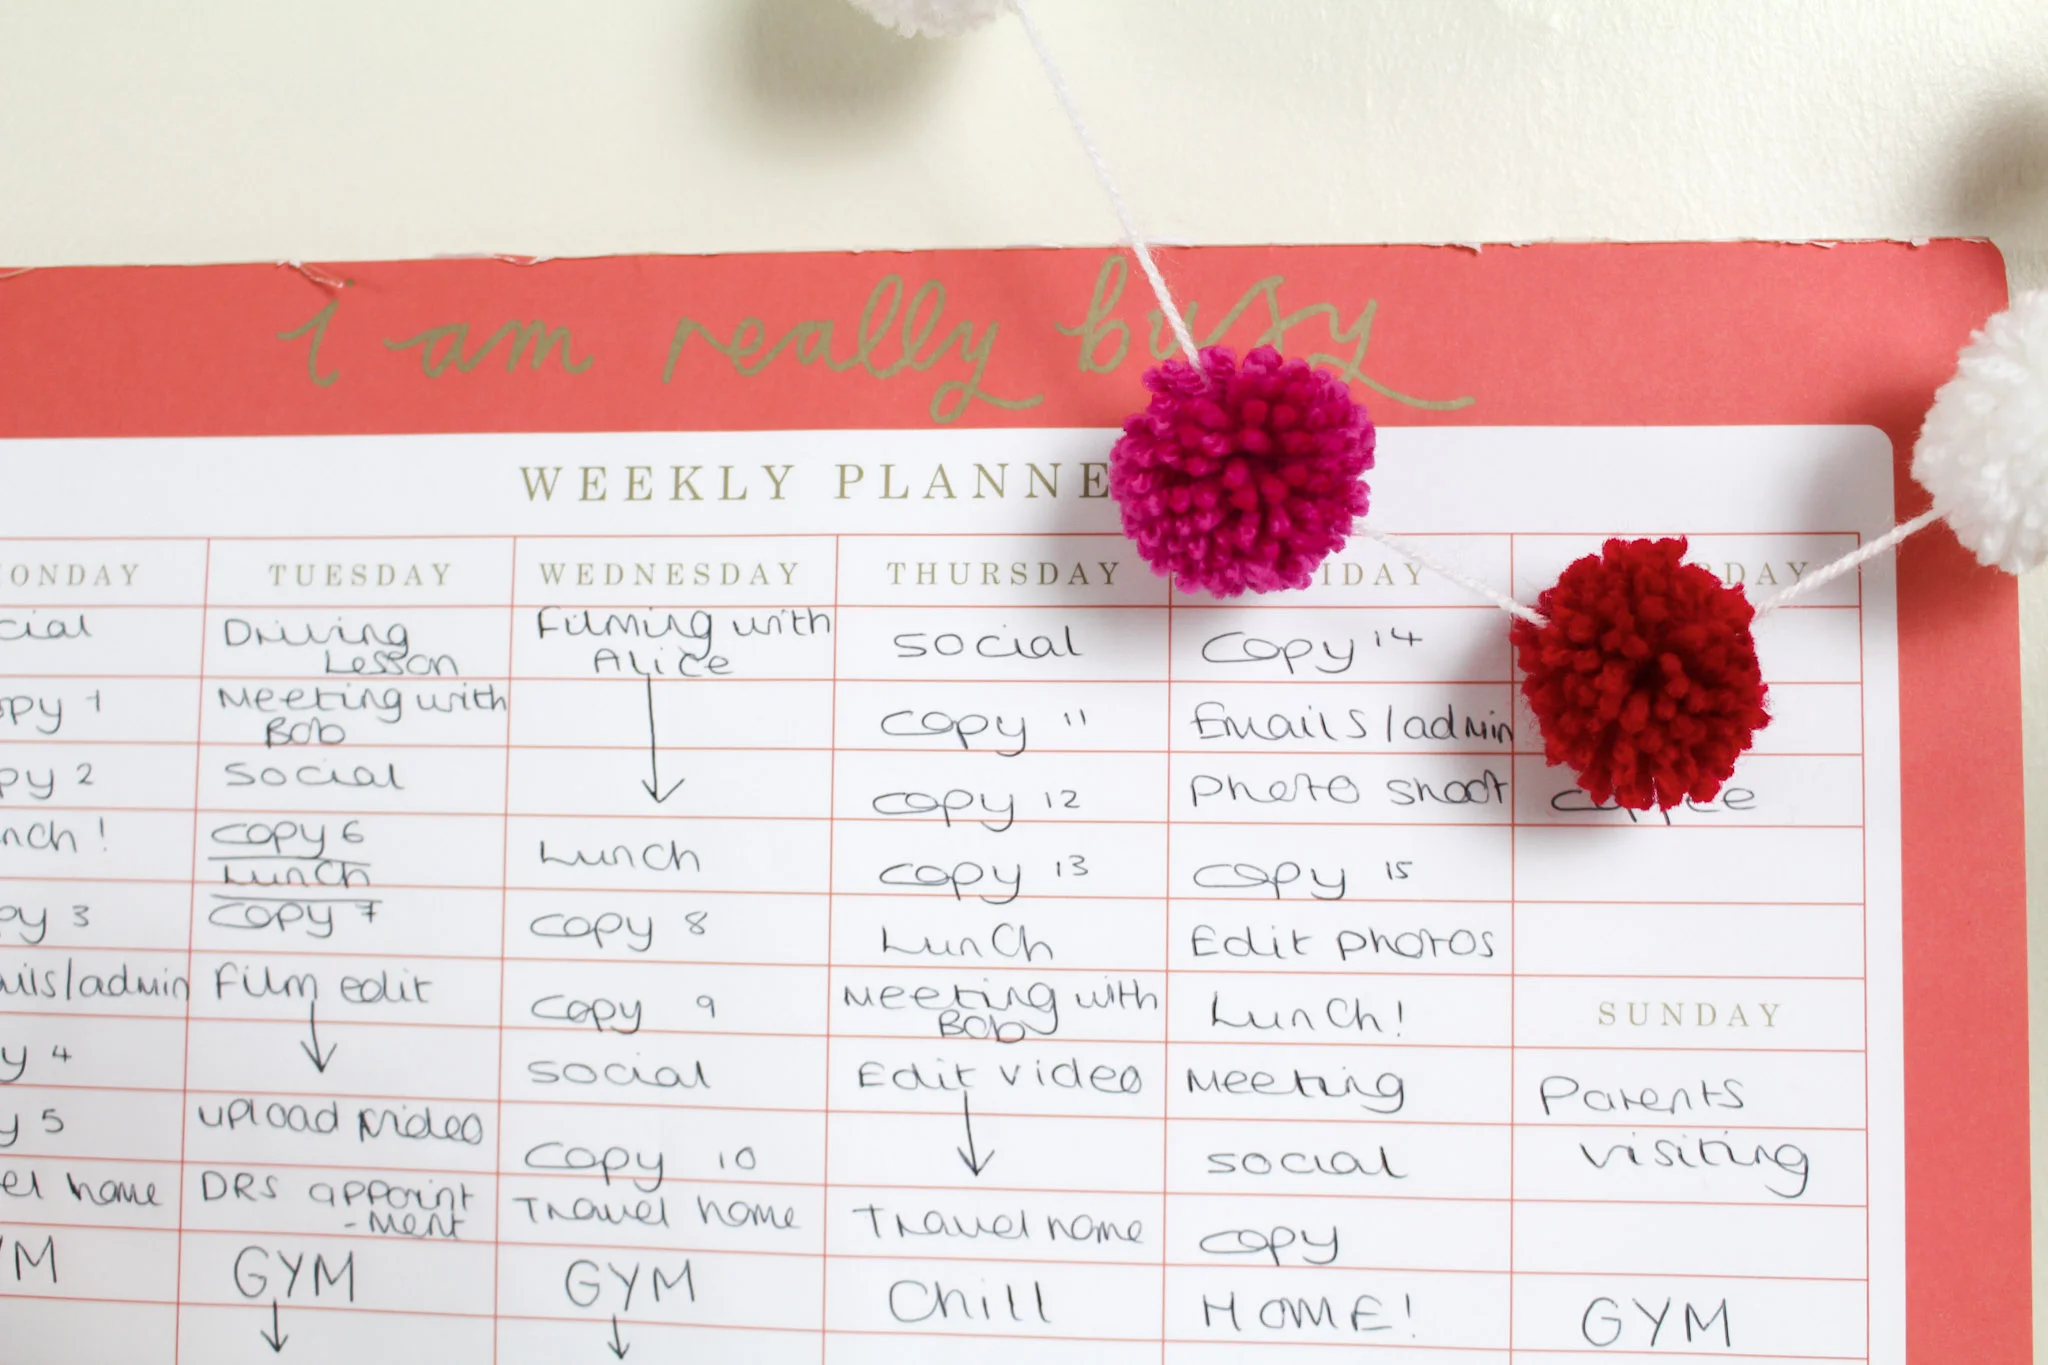 i am really busy
WEEKLY PLANNE
ONDAY
cial
py 1
py 2
nch!
py 3
ails/admin
y 4
y 5
el home
YM
TUESDAY
Driving
Lesson
Meeting with
Bob
Social
Copy 6
Lunch
Copy 7
Film edit
upload video
DRS appoint
-ment
GYM
WEDNESDAY
Filming with
Alice
Lunch
Copy 8
Copy 9
Social
Copy 10
Travel home
GYM
THURSDAY
Social
Copy 11
Copy 12
Copy 13
Lunch
Meeting with
Bob
Edit video
Travel home
Chill
IDAY
Copy 14
Emails/admin
Photo shoot
Copy 15
Edit photos
Lunch!
Meeting
Social
Copy
HOME!
DAY
SUNDAY
Parents
visiting
GYM